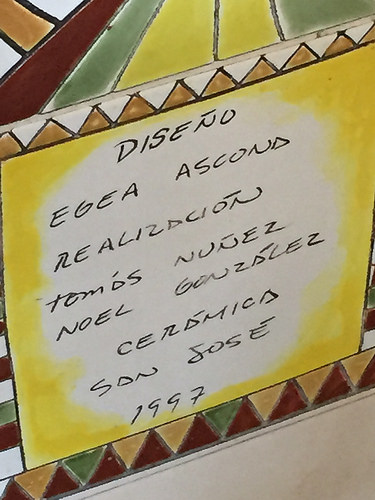 DISEÑO
EGEA ASCONA
REALIZACIÓN
tomás NUÑEZ
NOEL GONZÁLEZ
CERÁMICA
SAN JOSÉ
1997